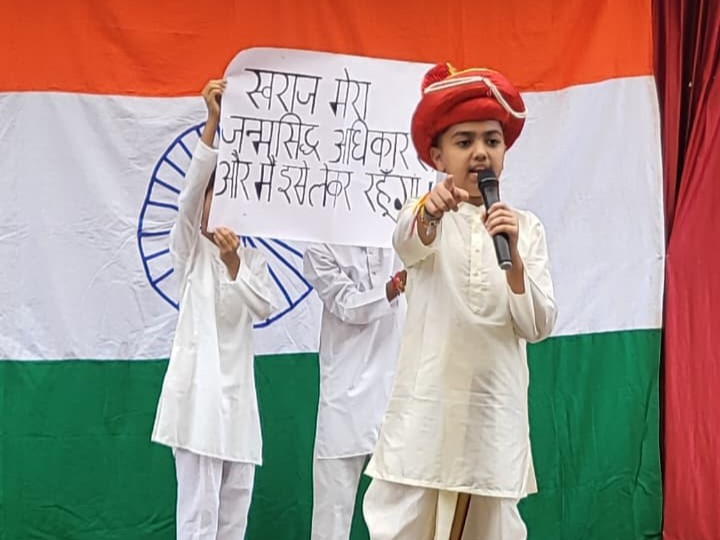 स्वराज मेरा
जन्मसिद्ध अधिकार
और मैं इसे लेकर रहूँगा !